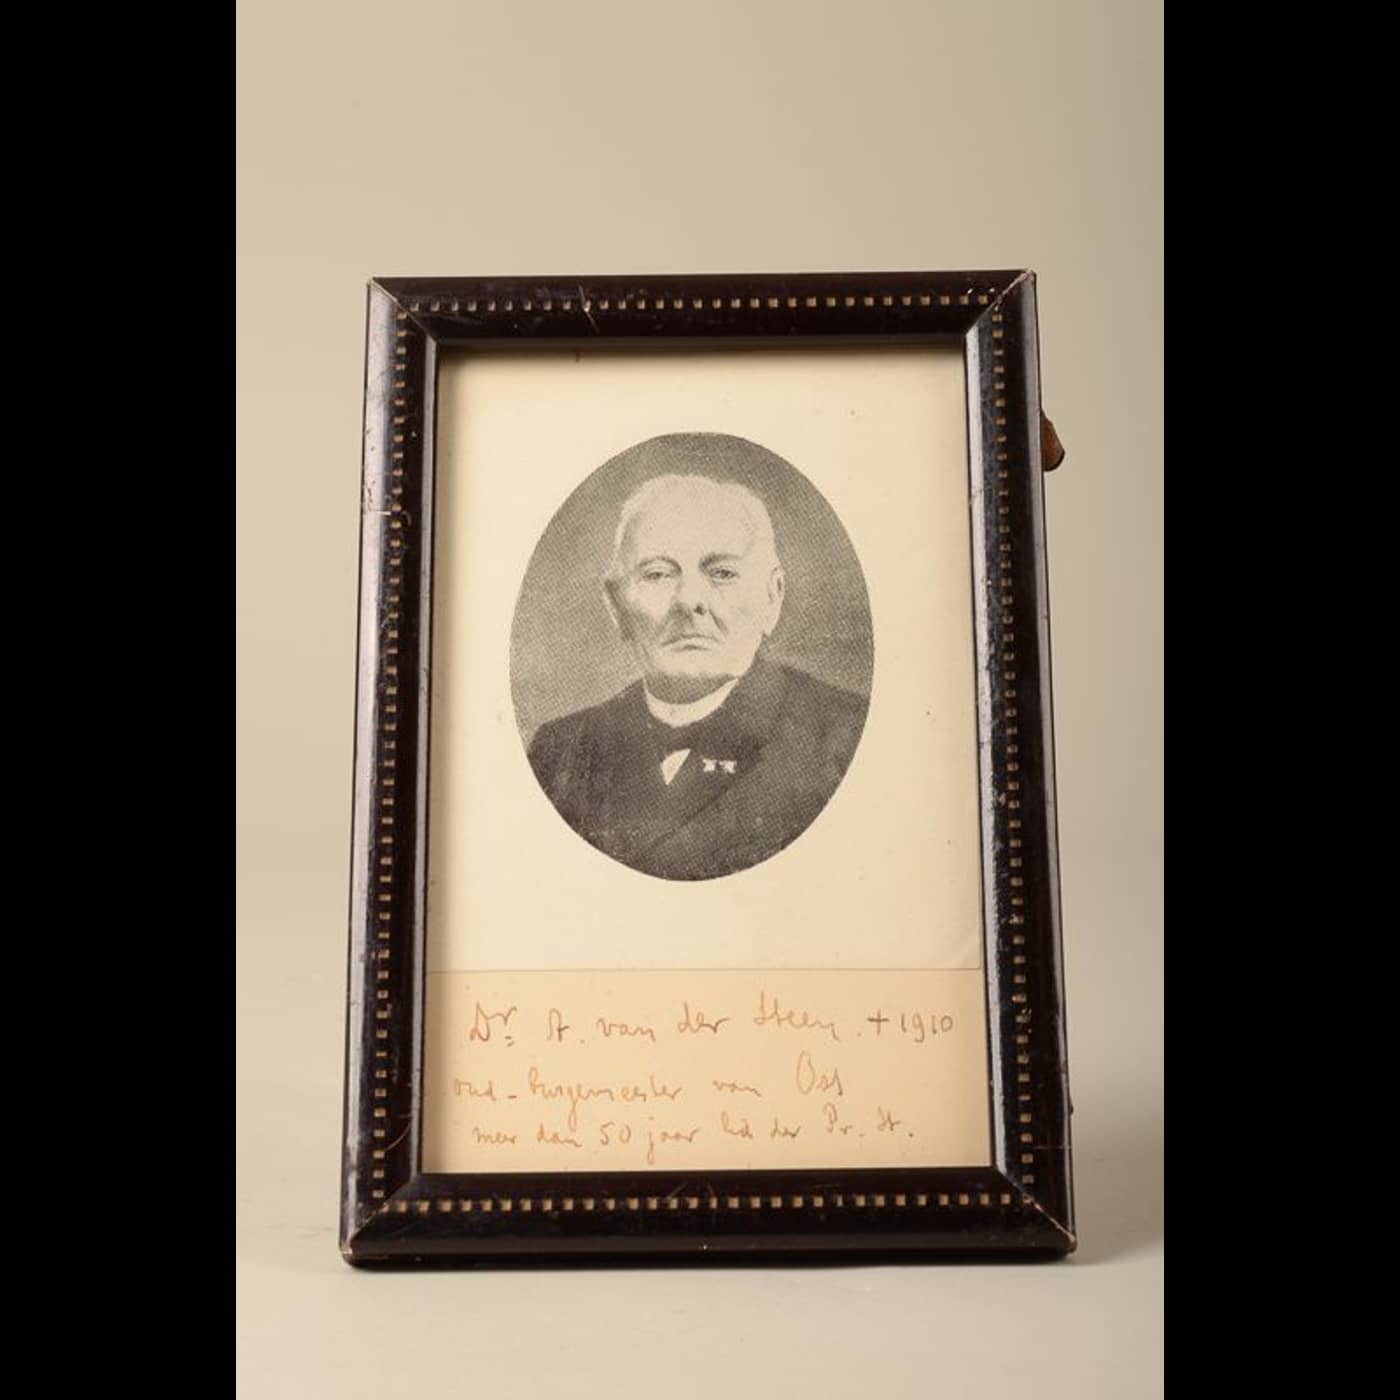 Dr. A. van der Steen. † 1910
oud - burgemeester van Oss
meer dan 50 jaar lid der Pr. St.